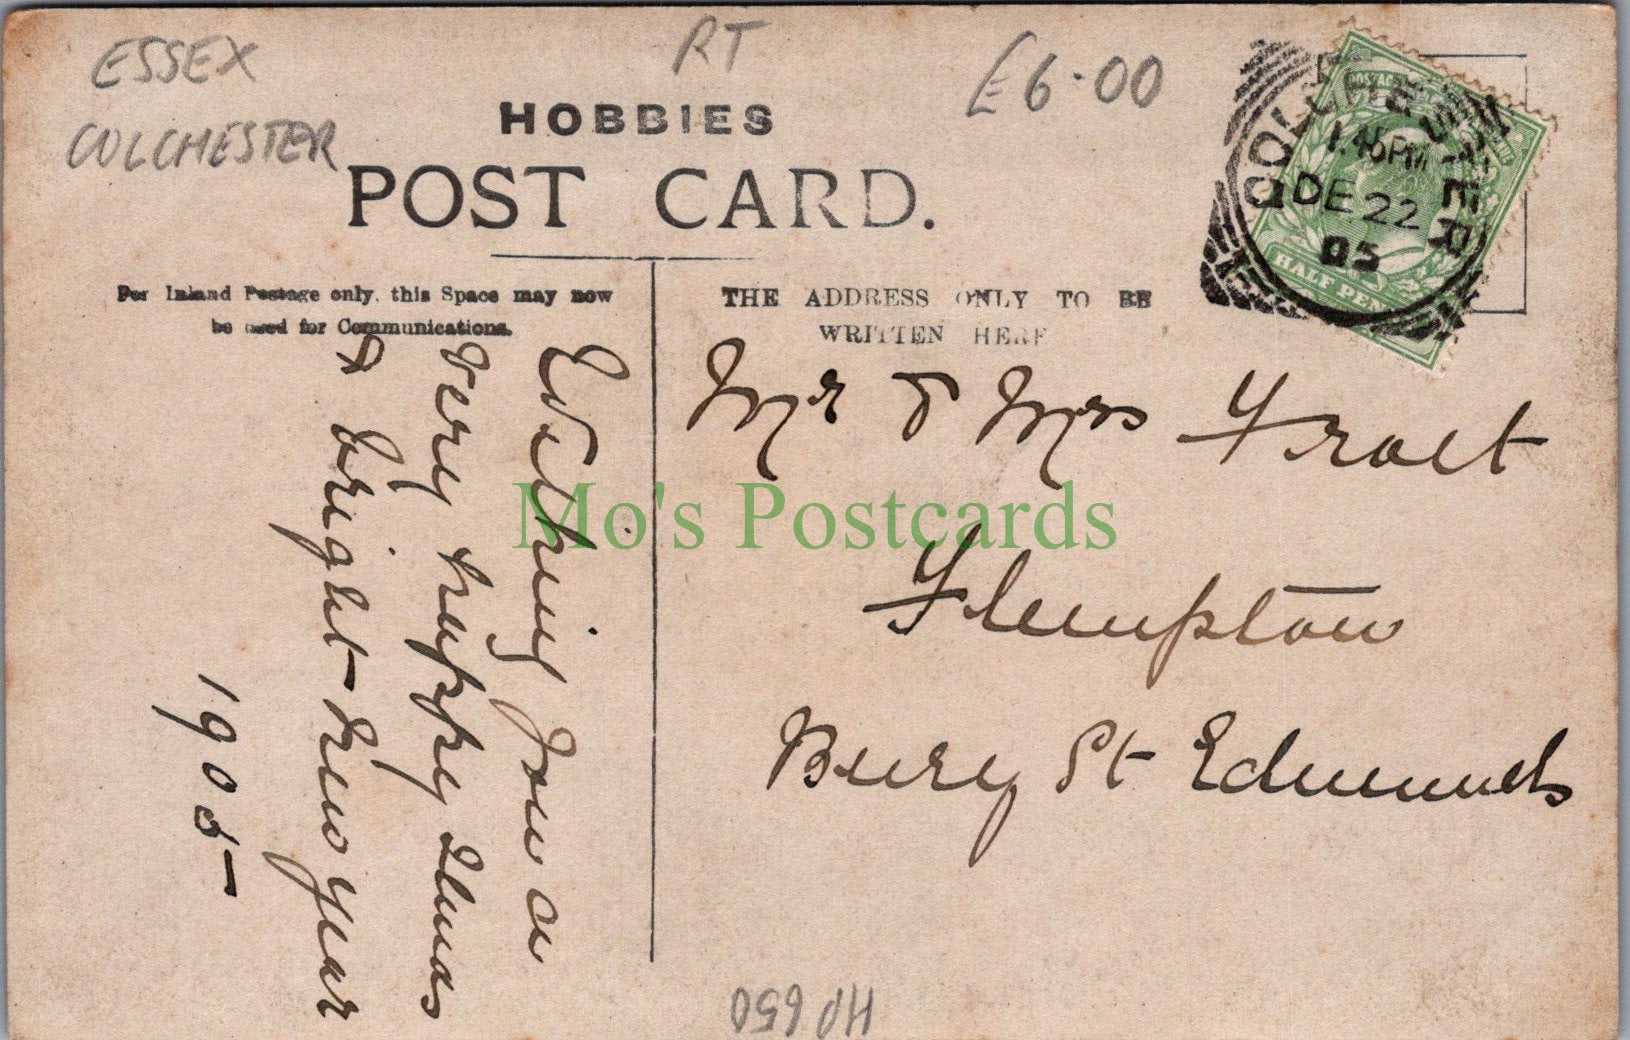 ESSEX
COLCHESTER
RT
£6.00
HOBBIES
POST CARD.
For Inland Postage only, this Space may now
be used for Communications.
THE ADDRESS ONLY TO BE
WRITTEN HERE
COLCHESTER
1.45PM
DE 22
05
POSTAGE
HALF PENNY
Wishing you a
very happy Xmas
& bright New year
1905
Mr & Mrs Frost
Flempton
Bury St Edmunds
Mo's Postcards
HP 650